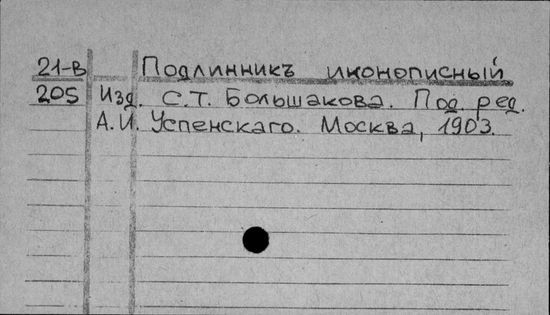 21-В Подлинникъ иконописный
205 Изд. С.Т. Большакова. Под ред.
А.И. Успенскаго. Москва, 1903.